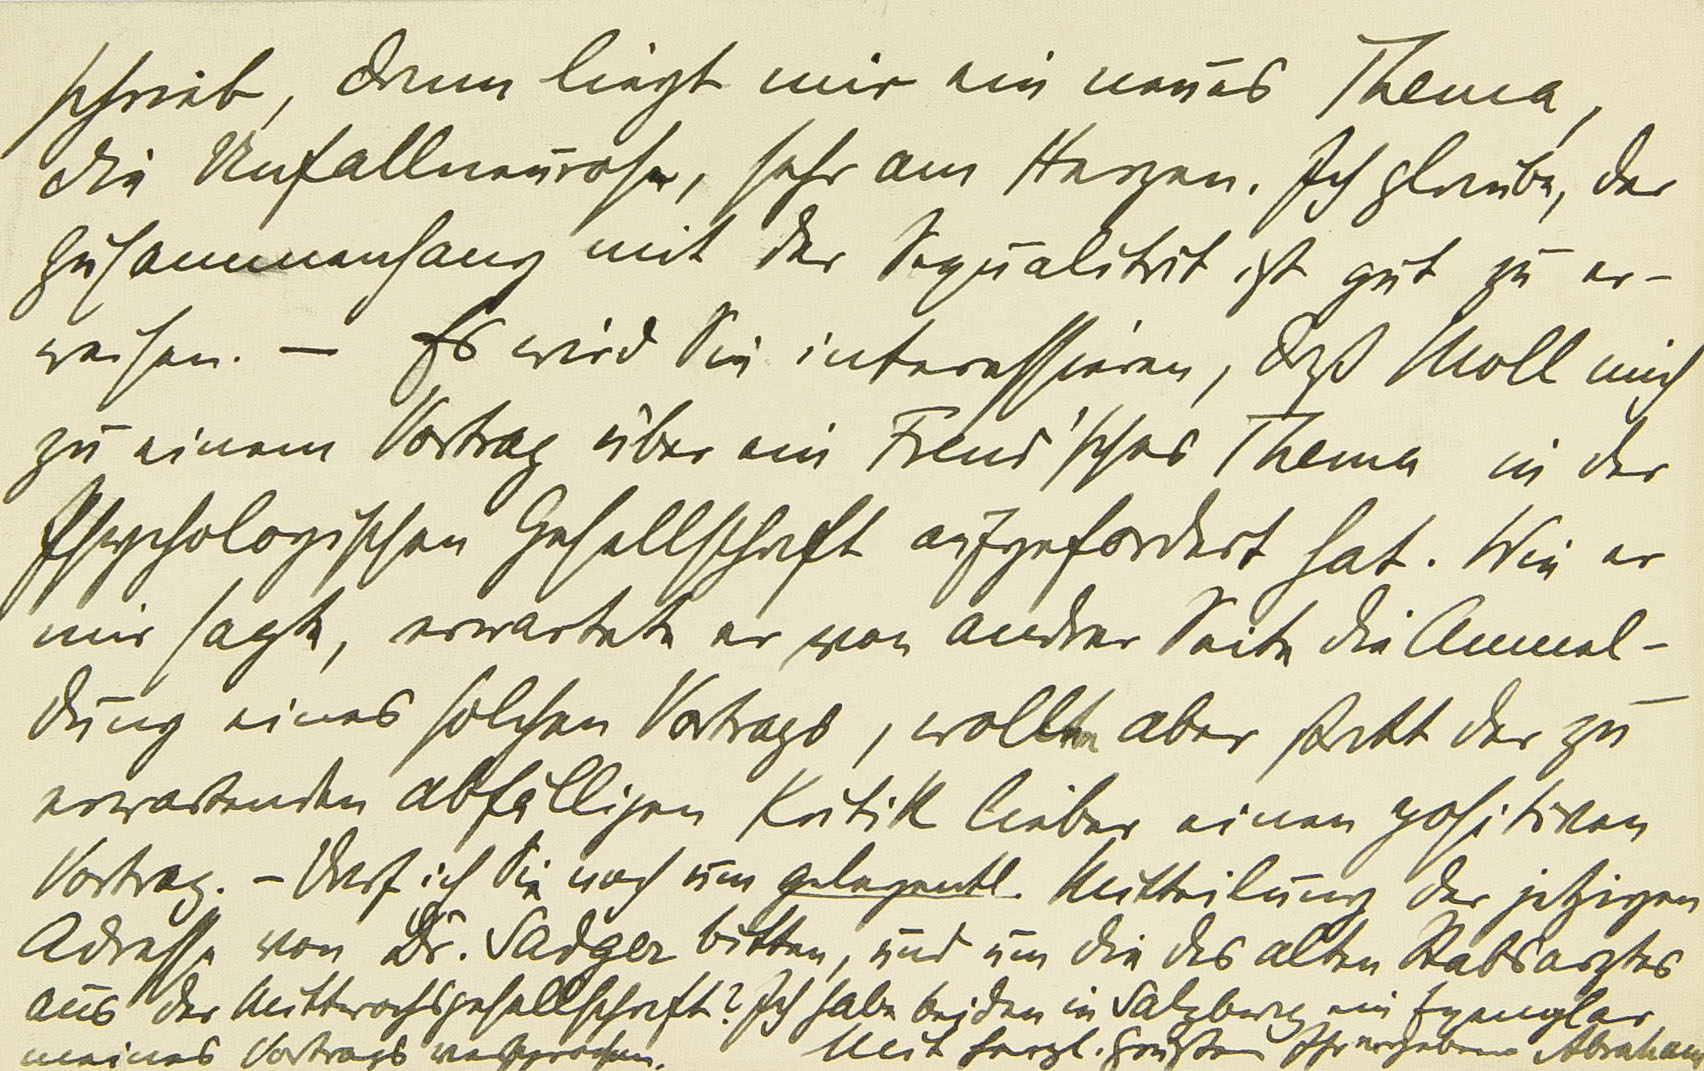 schrieb, dann liegt mir ein neues Thema,
die Unfallneurose, sehr am Herzen. Ich glaube, der
Zusammenhang mit der Sexualität ist gut zu er-
weisen. — Es wird Sie interessieren, daß Moll mich
zu einem Vortrag über ein Freud'sches Thema in der
Psychologischen Gesellschaft aufgefordert hat. Wie er
mir sagte, erwartete er von andrer Seite die Anmel-
dung eines solchen Vortrags, wollte aber statt der zu
erwartenden abfälligen Kritik lieber einen positiven
Vortrag. – Darf ich Sie noch um gelegentl. Mitteilung der jetzigen
Adresse von Dr. Sadger bitten, und um die des alten Stabsarztes
aus der Mittwochsgesellschaft? Ich habe beiden in Salzburg ein Exemplar
meines Vortrags versprochen. Mit herzl. Grüßen Ihr ergebener Abraham